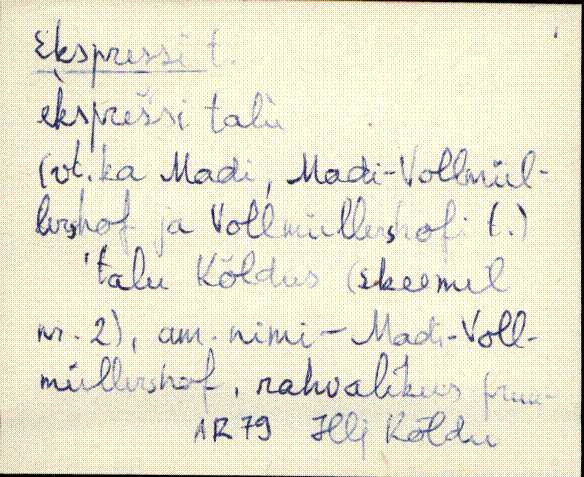 Ekspressi t.
èkspreśsi talù
(vt.ka Madi, Madi-Vollmül-
lershof ja Vollmüllershofi t.)
'talu Kõldus (skeemil
nr. 2), am. nimi - Madi-Voll-
müllershof, rahvalikus
AR 79 Illi Kõldu